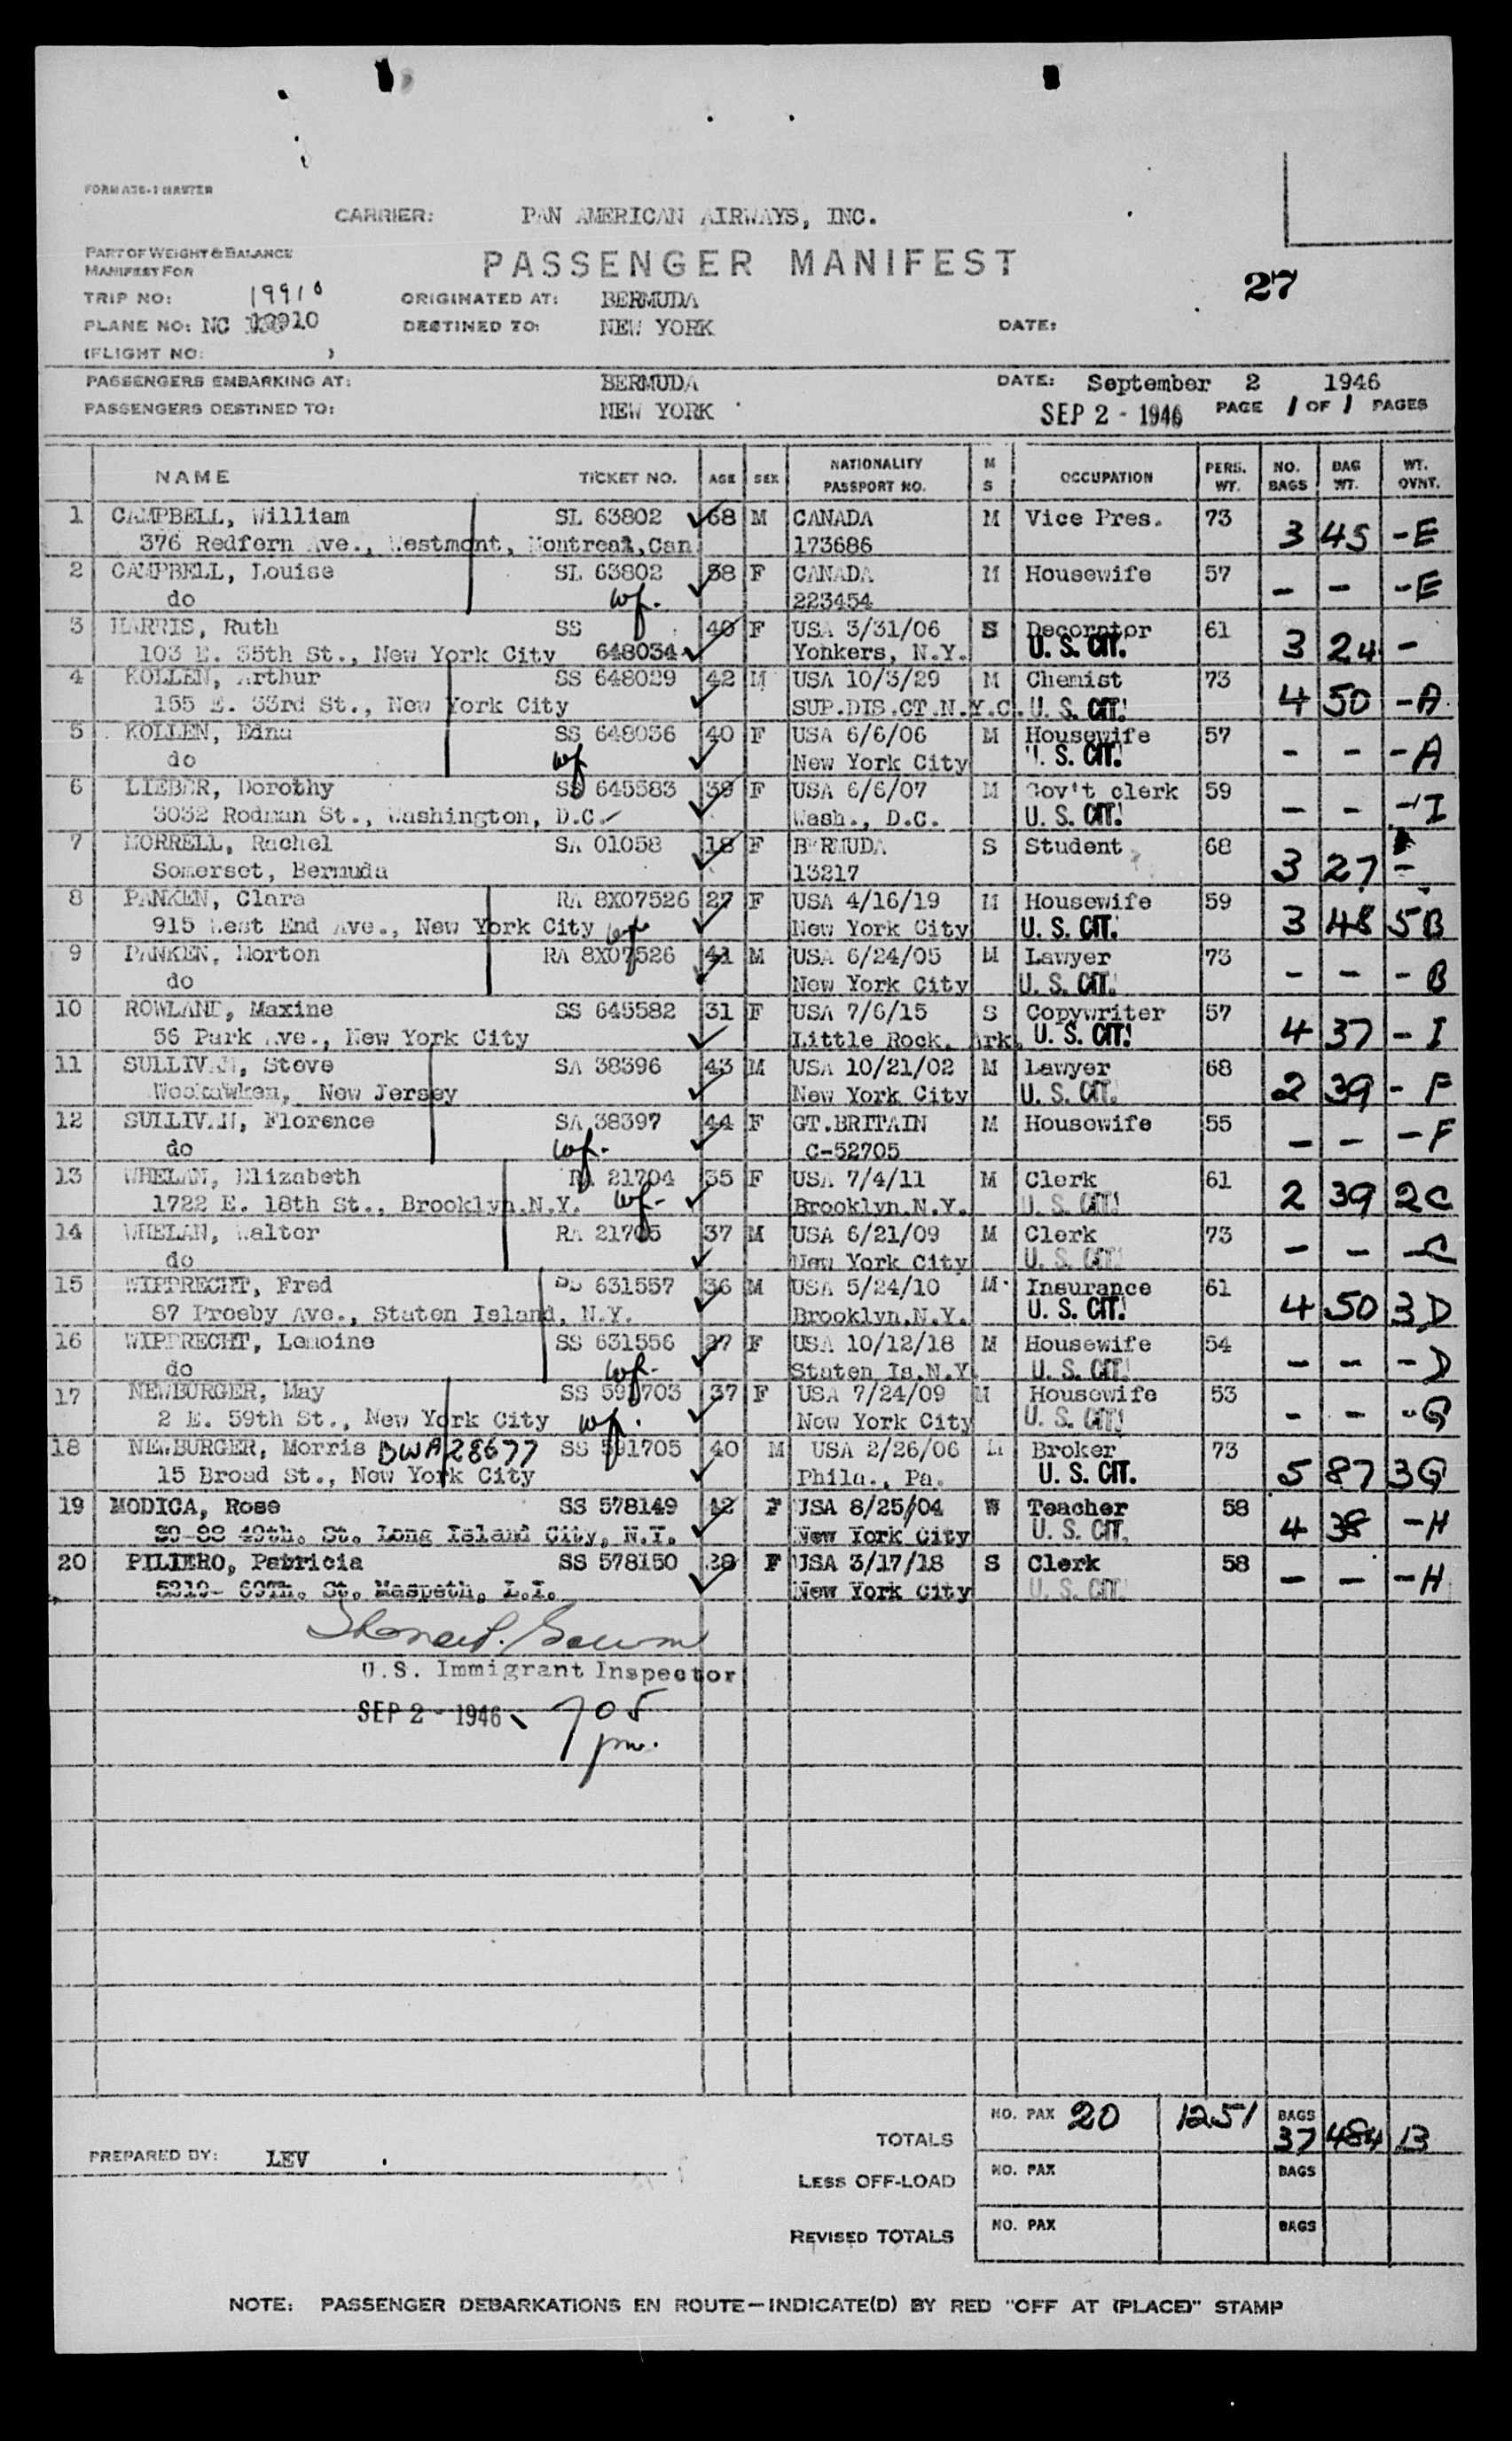 FORM A36-1 MASTER
CARRIER: PAN AMERICAN AIRWAYS, INC.
PART OF WEIGHT & BALANCE
MANIFEST FOR
PASSENGER MANIFEST
27
TRIP NO: 19910 ORIGINATED AT: BERMUDA
PLANE NO: NC DESTINED TO: NEW YORK DATE:
(FLIGHT NO: )
PASSENGERS EMBARKING AT: BERMUDA DATE: September 2 1946
PASSENGERS DESTINED TO: NEW YORK SEP 2 - 1946 PAGE 1 OF 1 PAGES
NAME TICKET NO. AGE SEX NATIONALITY PASSPORT NO. M S OCCUPATION PERS. WT. NO. BAGS BAG WT. WT. OVNT.
1 CAMPBELL, William SL 63802 68 M CANADA M Vice Pres. 73 3 45 - E
376 Redfern Ave., Westmont, Montreal, Can. 173686
2 CAMPBELL, Louise SL 63802 58 F CANADA M Housewife 57 - - - E
do wf. 223454
3 HARRIS, Ruth SS 40 F USA 3/31/06 S Decorator 61 3 24 -
103 E. 35th St., New York City 648034 Yonkers, N.Y. U. S. CIT.
4 KOLLEN, Arthur SS 648029 42 M USA 10/3/29 M Chemist 73 4 50 - A
155 E. 33rd St., New York City SUP.DIS.CT.N.Y.C. U. S. CIT.
5 KOLLEN, Edna SS 648036 40 F USA 6/6/06 M Housewife 57 - - - A
do wf New York City U. S. CIT.
6 LIEBER, Dorothy SS 645583 39 F USA 6/6/07 M Gov't clerk 59 - - - I
3032 Rodman St., Washington, D.C. Wash., D.C. U. S. CIT.
7 MORRELL, Rachel SA 01058 18 F BERMUDA S Student 68 3 27 -
Somerset, Bermuda 13217
8 PANKEN, Clara RA 8X07526 27 F USA 4/16/19 M Housewife 59 3 48 5B
915 West End Ave., New York City wf New York City U. S. CIT.
9 PANKEN, Morton RA 8X07526 41 M USA 6/24/05 M Lawyer 73 - - - B
do New York City U. S. CIT.
10 ROWLAND, Maxine SS 645582 31 F USA 7/6/15 S Copywriter 57 4 37 - I
56 Park Ave., New York City Little Rock, Ark. U. S. CIT.
11 SULLIVAN, Steve SA 38396 43 M USA 10/21/02 M Lawyer 68 2 39 - F
New Jersey New York City U. S. CIT.
12 SULLIVAN, Florence SA 38397 44 F GT.BRITAIN M Housewife 55 - - - F
do wf. C-52705
13 WHELAN, Elizabeth RA 21704 35 F USA 7/4/11 M Clerk 61 2 39 2C
1722 E. 18th St., Brooklyn, N.Y. wf- Brooklyn, N.Y. U. S. CIT.
14 WHELAN, Walter RA 21705 37 M USA 6/21/09 M Clerk 73 - - - C
do New York City U. S. CIT.
15 WIPPRECHT, Fred SS 631557 36 M USA 5/24/10 M Insurance 61 4 50 3D
87 Ave., Staten Island, N.Y. Brooklyn, N.Y. U. S. CIT.
16 WIPPRECHT, Lemoine SS 631556 27 F USA 10/12/18 M Housewife 54 - - - D
do wf- Staten Is.N.Y. U. S. CIT.
17 NEWBURGER, May SS 591703 37 F USA 7/24/09 M Housewife 53 - - - G
2 E. 59th St., New York City wf. New York City U. S. CIT.
18 NEWBURGER, Morris BWA 28677 SS 591705 40 M USA 2/26/06 M Broker 73 5 87 3G
15 Broad St., New York City Phila., Pa. U. S. CIT.
19 MODICA, Rose SS 578149 42 F USA 8/25/04 W Teacher 58 4 38 - H
49th. St. Long Island City, N.Y. New York City U. S. CIT.
20 PILIERO, Patricia SS 578150 28 F USA 3/17/18 S Clerk 58 - - - H
5210- 69Th. St. Maspeth, L.I. New York City U. S. CIT.
U.S. Immigrant Inspector
SEP 2 - 1946 705
pm.
TOTALS NO. PAX 20 1251 BAGS 37 484 13
PREPARED BY: LEV
LESS OFF-LOAD NO. PAX BAGS
REVISED TOTALS NO. PAX BAGS
NOTE: PASSENGER DEBARKATIONS EN ROUTE—INDICATE(D) BY RED "OFF AT (PLACE)" STAMP